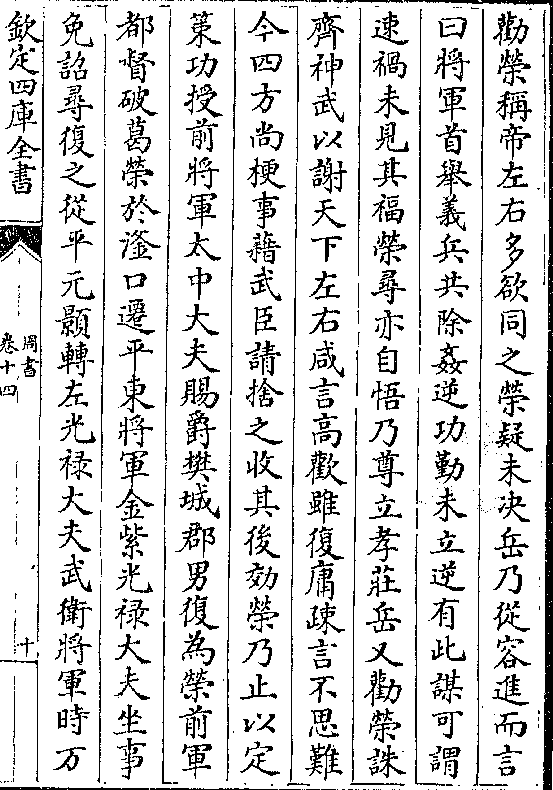 勸榮稱帝左右多欲同之榮疑未决岳乃從容進而言
曰將軍首舉義兵共除姦逆功勤未立逆有此謀可謂
速禍未見其福榮尋亦自悟乃尊立孝莊岳又勸榮誅
齊神武以謝天下左右咸言高歡雖復庸疎言不思難
今四方尚梗事藉武臣請捨之收其後効榮乃止以定
策功授前將軍太中大夫賜爵樊城郡男復為榮前軍
都督破葛榮於滏口遷平東將軍金紫光禄大夫坐事
免詔尋復之從平元顥轉左光禄大夫武衛將軍時万
欽定四庫全書
周書
卷十四
十